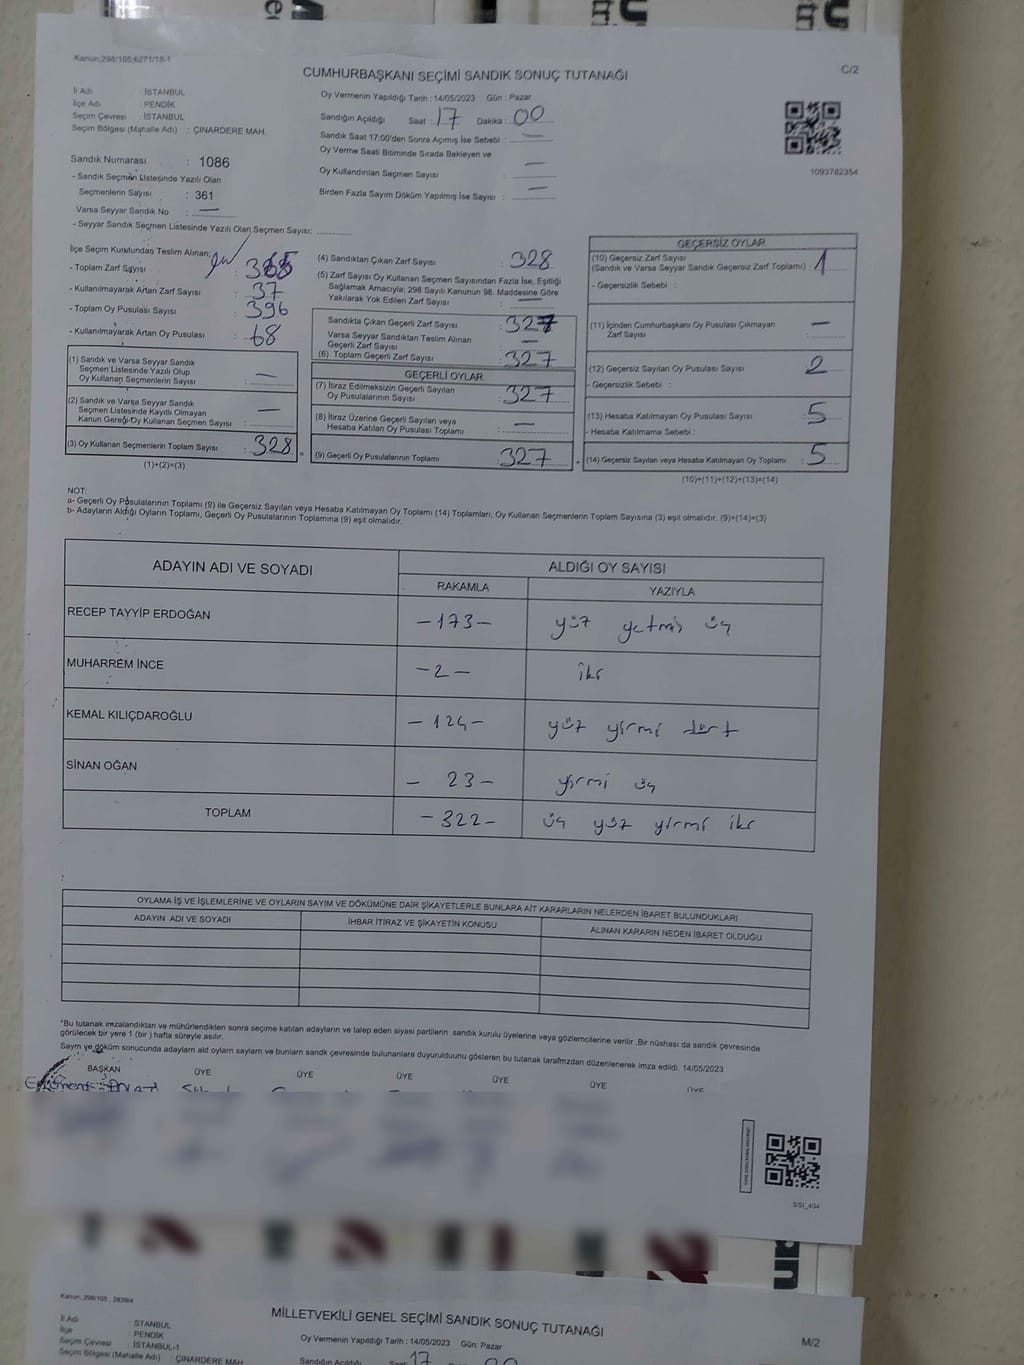 Kanun;298/105;6271/18-1
CUMHURBAŞKANI SEÇİMİ SANDIK SONUÇ TUTANAĞI
C/2
İl Adı : İSTANBUL
İlçe Adı : PENDİK
Seçim Çevresi : İSTANBUL
Seçim Bölgesi (Mahalle Adı) : ÇINARDERE MAH.
Sandık Numarası : 1086
- Sandık Seçmen Listesinde Yazılı Olan
Seçmenlerin Sayısı : 361
Varsa Seyyar Sandık No : —
- Seyyar Sandık Seçmen Listesinde Yazılı Olan Seçmen Sayısı:
Oy Vermenin Yapıldığı Tarih : 14/05/2023 Gün : Pazar
Sandığın Açıldığı Saat : 17 Dakika : 00
Sandık Saat 17:00'den Sonra Açımış İse Sebebi : —
Oy Verme Saati Bitiminde Sırada Bekleyen ve
Oy Kullandırılan Seçmen Sayısı : —
Birden Fazla Sayım Döküm Yapılmış İse Sayısı : —
1093762354
İlçe Seçim Kurulundan Teslim Alınan;
- Toplam Zarf Sayısı : 365
- Kullanılmayarak Artan Zarf Sayısı : 37
- Toplam Oy Pusulası Sayısı : 396
- Kullanılmayarak Artan Oy Pusulası : 68
(1) Sandık ve Varsa Seyyar Sandık
Seçmen Listesinde Yazılı Olup
Oy Kullanan Seçmenlerin Sayısı : —
(2) Sandık ve Varsa Seyyar Sandık
Seçmen Listesinde Kayıtlı Olmayan
Kanun Gereği Oy Kullanan Seçmen Sayısı : —
(3) Oy Kullanan Seçmenlerin Toplam Sayısı : 328
(1)+(2)=(3)
(4) Sandıktan Çıkan Zarf Sayısı : 328
(5) Zarf Sayısı Oy Kullanan Seçmen Sayısından Fazla İse, Eşitliği
Sağlamak Amacıyla; 298 Sayılı Kanunun 98. Maddesine Göre
Yakılarak Yok Edilen Zarf Sayısı : —
Sandıkta Çıkan Geçerli Zarf Sayısı : 327
Varsa Seyyar Sandıktan Teslim Alınan
Geçerli Zarf Sayısı : —
(6) Toplam Geçerli Zarf Sayısı : 327
GEÇERLİ OYLAR
(7) İtiraz Edilmeksizin Geçerli Sayılan
Oy Pusulalarının Sayısı : 327
(8) İtiraz Üzerine Geçerli Sayılan veya
Hesaba Katılan Oy Pusulası Toplamı : —
(9) Geçerli Oy Pusulalarının Toplamı : 327
GEÇERSİZ OYLAR
(10) Geçersiz Zarf Sayısı
(Sandık ve Varsa Seyyar Sandık Geçersiz Zarf Toplamı) : 1
- Geçersizlik Sebebi :
(11) İçinden Cumhurbaşkanı Oy Pusulası Çıkmayan
Zarf Sayısı : —
(12) Geçersiz Sayılan Oy Pusulası Sayısı : 2
- Geçersizlik Sebebi :
(13) Hesaba Katılmayan Oy Pusulası Sayısı : 5
- Hesaba Katılmama Sebebi :
(14) Geçersiz Sayılan veya Hesaba Katılmayan Oy Toplamı : 5
(10)+(11)+(12)+(13)=(14)
NOT:
a- Geçerli Oy Pusulalarının Toplamı (9) ile Geçersiz Sayılan veya Hesaba Katılmayan Oy Toplamı (14) Toplamları, Oy Kullanan Seçmenlerin Toplam Sayısına (3) eşit olmalıdır. (9)+(14)=(3)
b- Adayların Aldığı Oyların Toplamı, Geçerli Oy Pusulalarının Toplamına (9) eşit olmalıdır.
ADAYIN ADI VE SOYADI ALDIĞI OY SAYISI
RAKAMLA YAZIYLA
RECEP TAYYİP ERDOĞAN -173- yüz yetmiş üç
MUHARREM İNCE -2- iki
KEMAL KILIÇDAROĞLU -124- yüz yirmi dört
SİNAN OĞAN - 23- yirmi üç
TOPLAM -322- üç yüz yirmi iki
OYLAMA İŞ VE İŞLEMLERİNE VE OYLARIN SAYIM VE DÖKÜMÜNE DAİR ŞİKAYETLERLE BUNLARA AİT KARARLARIN NELERDEN İBARET BULUNDUKLARI
ADAYIN ADI VE SOYADI İHBAR İTİRAZ VE ŞİKAYETİN KONUSU ALINAN KARARIN NEDEN İBARET OLDUĞU
*Bu tutanak imzalandıktan ve mühürlendikten sonra seçime katılan adayların ve talep eden siyasi partilerin sandık kurulu üyelerine veya gözlemcilerine verilir .Bir nüshası da sandık çevresinde
görülecek bir yere 1 (bir ) hafta süreyle asılır.
Sayım ve döküm sonucunda adayların ald oyların sayların ve bunların sandk çevresinde bulunanlara duyurulduunu gösteren bu tutanak tarafmzdan düzenlenerek imza edildi. 14/05/2023
BAŞKAN ÜYE ÜYE ÜYE ÜYE ÜYE ÜYE
SSI_404
Kanun; 298/105 , 2839/4
MİLLETVEKİLİ GENEL SEÇİMİ SANDIK SONUÇ TUTANAĞI
M/2
İl Adı : İSTANBUL
İlçe : PENDİK
Seçim Çevresi : İSTANBUL-1
Seçim Bölgesi (Mahalle Adı) : ÇINARDERE MAH.
Oy Vermenin Yapıldığı Tarih : 14/05/2023 Gün: Pazar
Sandığın Açıldığı Saat: 17 00